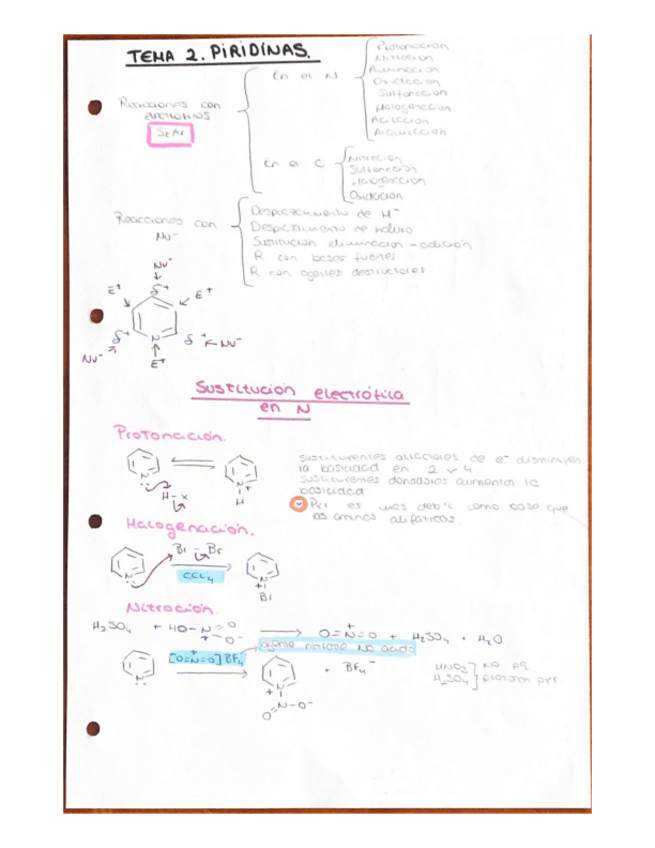 TEMA 2. PIRIDINAS.
Reacciones con
electrófilos
SEAr
En el N
Protonación
Nitración
Aminación
Oxidación
Sulfonación
Halogenación
Acilación
Alquilación
En el C
Nitración
Sulfonación
Halogenación
Oxidación
Reacciones con
Nu⁻
Desplazamiento de H⁻
Desplazamiento de haluro
Sustitución eliminación-adición
R con bases fuertes
R con agentes
Nu⁻
E⁺
δ⁺
E⁺
δ⁺
δ⁺
Nu⁻
Nu⁻
N
E⁺
Sustitución electrófila
en N
Protonación.
N
N
+
H
H-x
sustituyentes de e⁻ disminuyen
la basicidad en 2 y 4
sustituyentes donadores aumentan la
basicidad
Pir es más débil como base que
las aminas alifáticas
Halogenación.
Br-Br
N
CCl₄
N
+
Br
Nitración.
H₂SO₄ + HO-N=O
+ O⁻
O=N=O + H₂SO₄ + H₂O
+
agente nitrante NO ácido
[O=N=O] BF₄
+
N
N
+
N-O⁻
O
+ BF₄⁻
HNO₃
H₂SO₄
NO pq
protonan pir